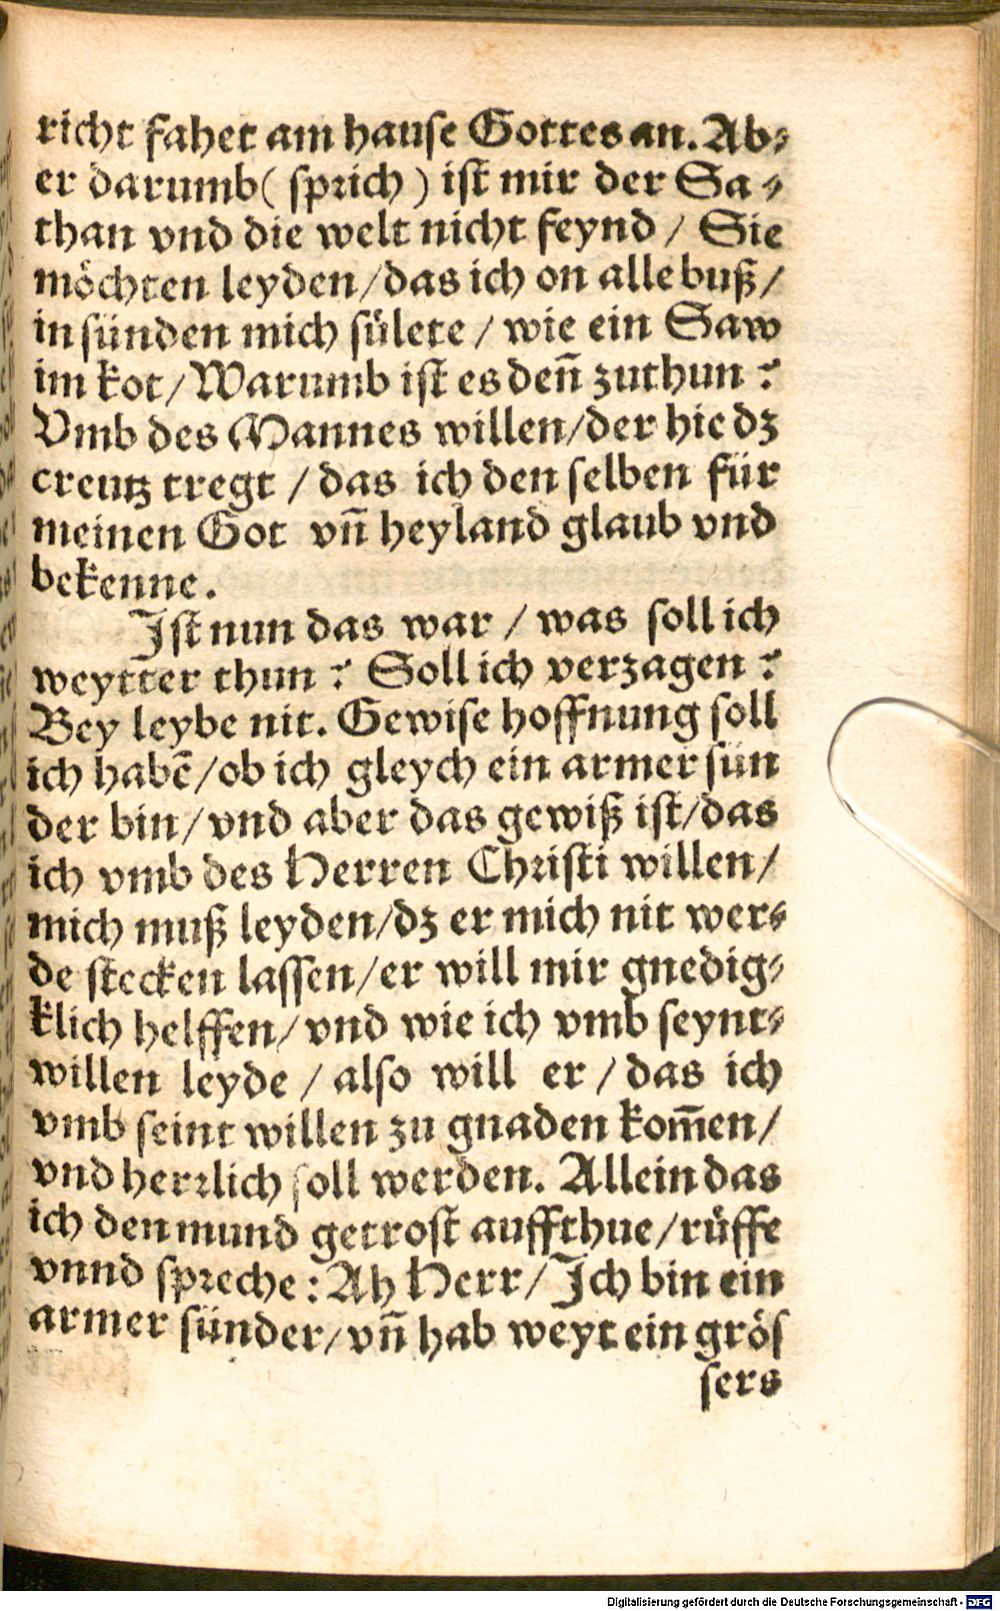 richt fahet am hause Gottes an. Ab⸗
er darumb( sprich ) ist mir der Sa⸗
than vnd die welt nicht feynd / Sie
möchten leyden/das ich on alle buß/
in sünden mich sülete / wie ein Saw
im kot/Warumb ist es deñ zuthun ?
Vmb des Mannes willen/der hie dz
creutz tregt / das ich den selben für
meinen Got vñ heyland glaub vnd
bekenne.
Ist nun das war / was soll ich
weytter thun ? Soll ich verzagen ?
Bey leybe nit. Gewise hoffnung soll
ich habē/ob ich gleych ein armer sün
der bin/vnd aber das gewiß ist/das
ich vmb des Herren Christi willen/
mich muß leyden/dz er mich nit wer⸗
de stecken lassen/er will mir gnedig⸗
klich helffen/vnd wie ich vmb seynt⸗
willen leyde / also will er / das ich
vmb seint willen zu gnaden kom̄en/
vnd herrlich soll werden. Allein das
ich den mund getrost auffthue/rüffe
vnnd spreche: Ah Herr/Ich bin ein
armer sünder/vñ hab weyt ein grös
sers
Digitalisierung gefördert durch die Deutsche Forschungsgemeinschaft - DFG